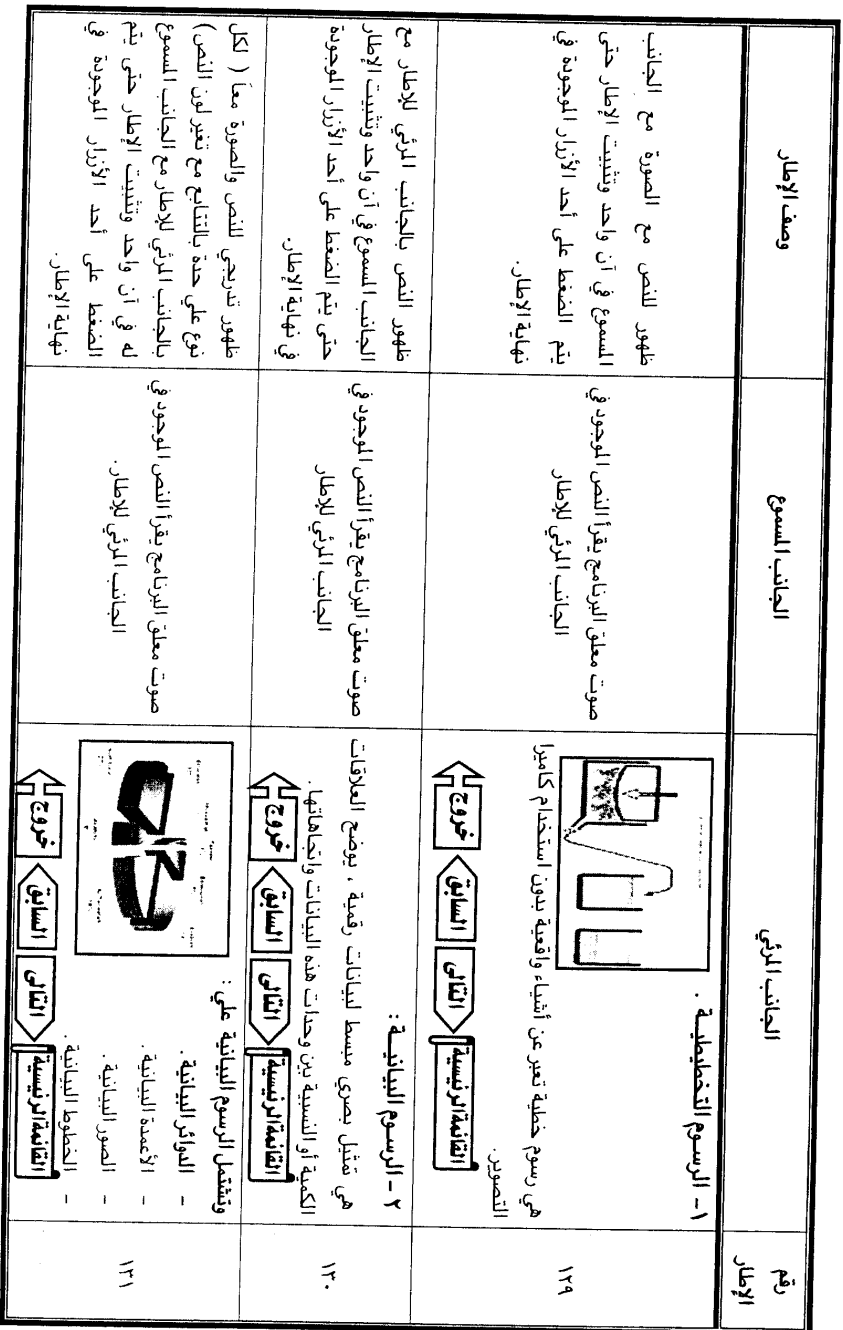 رقم
الإطار
الجانب المرئي
الجانب المسموع
وصف الإطار
١٢٩
١- الرسـوم التخطيطيــة .
هي رسوم خطية تعبر عن أشياء واقعية بدون استخدام كاميرا
التصوير.
القائمة الرئيسية
التالى
السابق
خروج
صوت معلق البرنامج يقرأ النص الموجود في
الجانب المرئي للإطار
ظهور للنص مع الصورة مع الجانب
المسموع في آن واحد وتثبيت الإطار حتى
يتم الضغط على أحد الأزرار الموجودة في
نهاية الإطار.
١٣٠
٢ - الرسـوم البيانيـــة :
هي تمثيل بصري مبسط لبيانات رقمية ، يوضح العلاقات
الكمية أو النسبية بين وحدات هذه البيانات واتجاهاتها.
القائمة الرئيسية
التالى
السابق
خروج
صوت معلق البرنامج يقرأ النص الموجود في
الجانب المرئي للإطار
ظهور النص بالجانب المرئي للإطار مع
الجانب المسموع في آن واحد وتثبيت الإطار
حتى يتم الضغط على أحد الأزرار الموجودة
في نهاية الإطار.
١٣١
وتشتمل الرسوم البيانية علي :
- الدوائر البيانية .
- الأعمدة البيانية .
- الصور البيانية .
- الخطوط البيانية .
القائمة الرئيسية
التالى
السابق
خروج
صوت معلق البرنامج يقرأ النص الموجود في
الجانب المرئي للإطار.
ظهور تدريجي للنص والصورة معاً ( لكل
نوع علي حدة بالتتابع مع تغير لون النص )
بالجانب المرئي للإطار مع الجانب المسموع
له في آن واحد وتثبيت الإطار حتى يتم
الضغط على أحد الأزرار الموجودة في
نهاية الإطار.